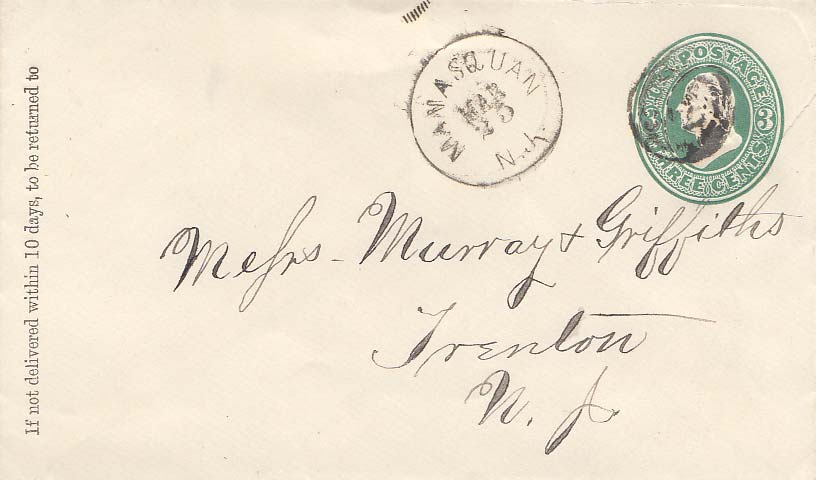 If not delivered within 10 days, to be returned to
MANASQUAN
MAR
N.J.
U.S. POSTAGE
3
THREE CENTS
Messrs - Murray & Griffiths
Trenton
N. J.